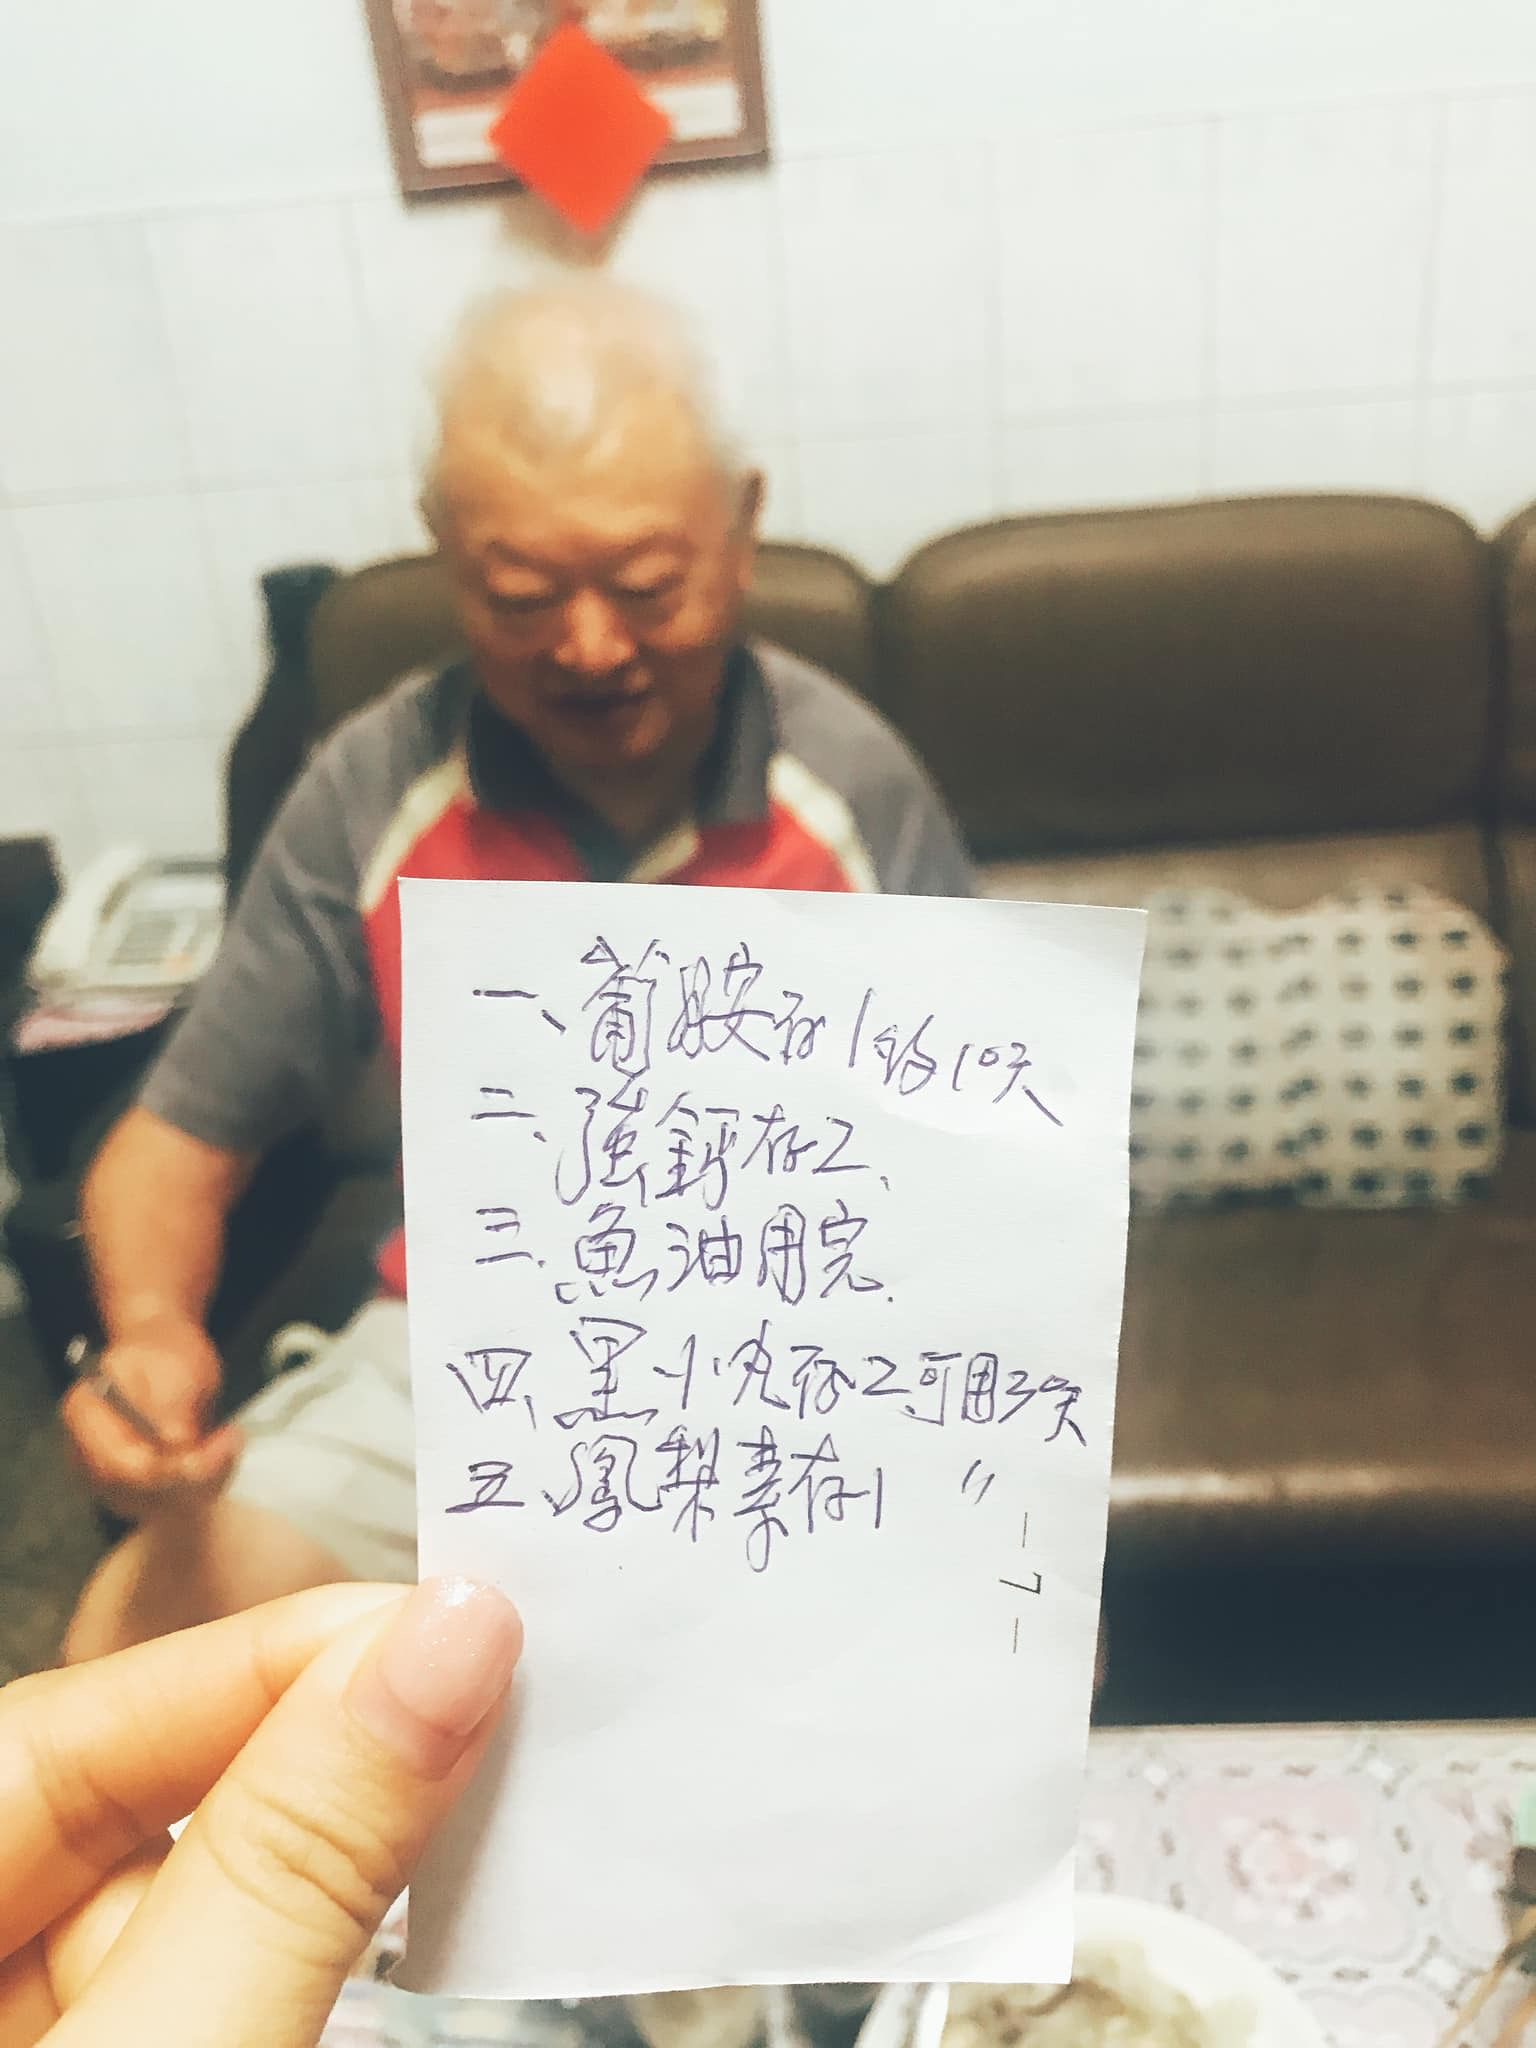 一、葡胺存1約10天
二、強鈣存2、
三、魚油用完.
四、黑小丸存2可用30天
五、鳳梨素存1 〃
—7—